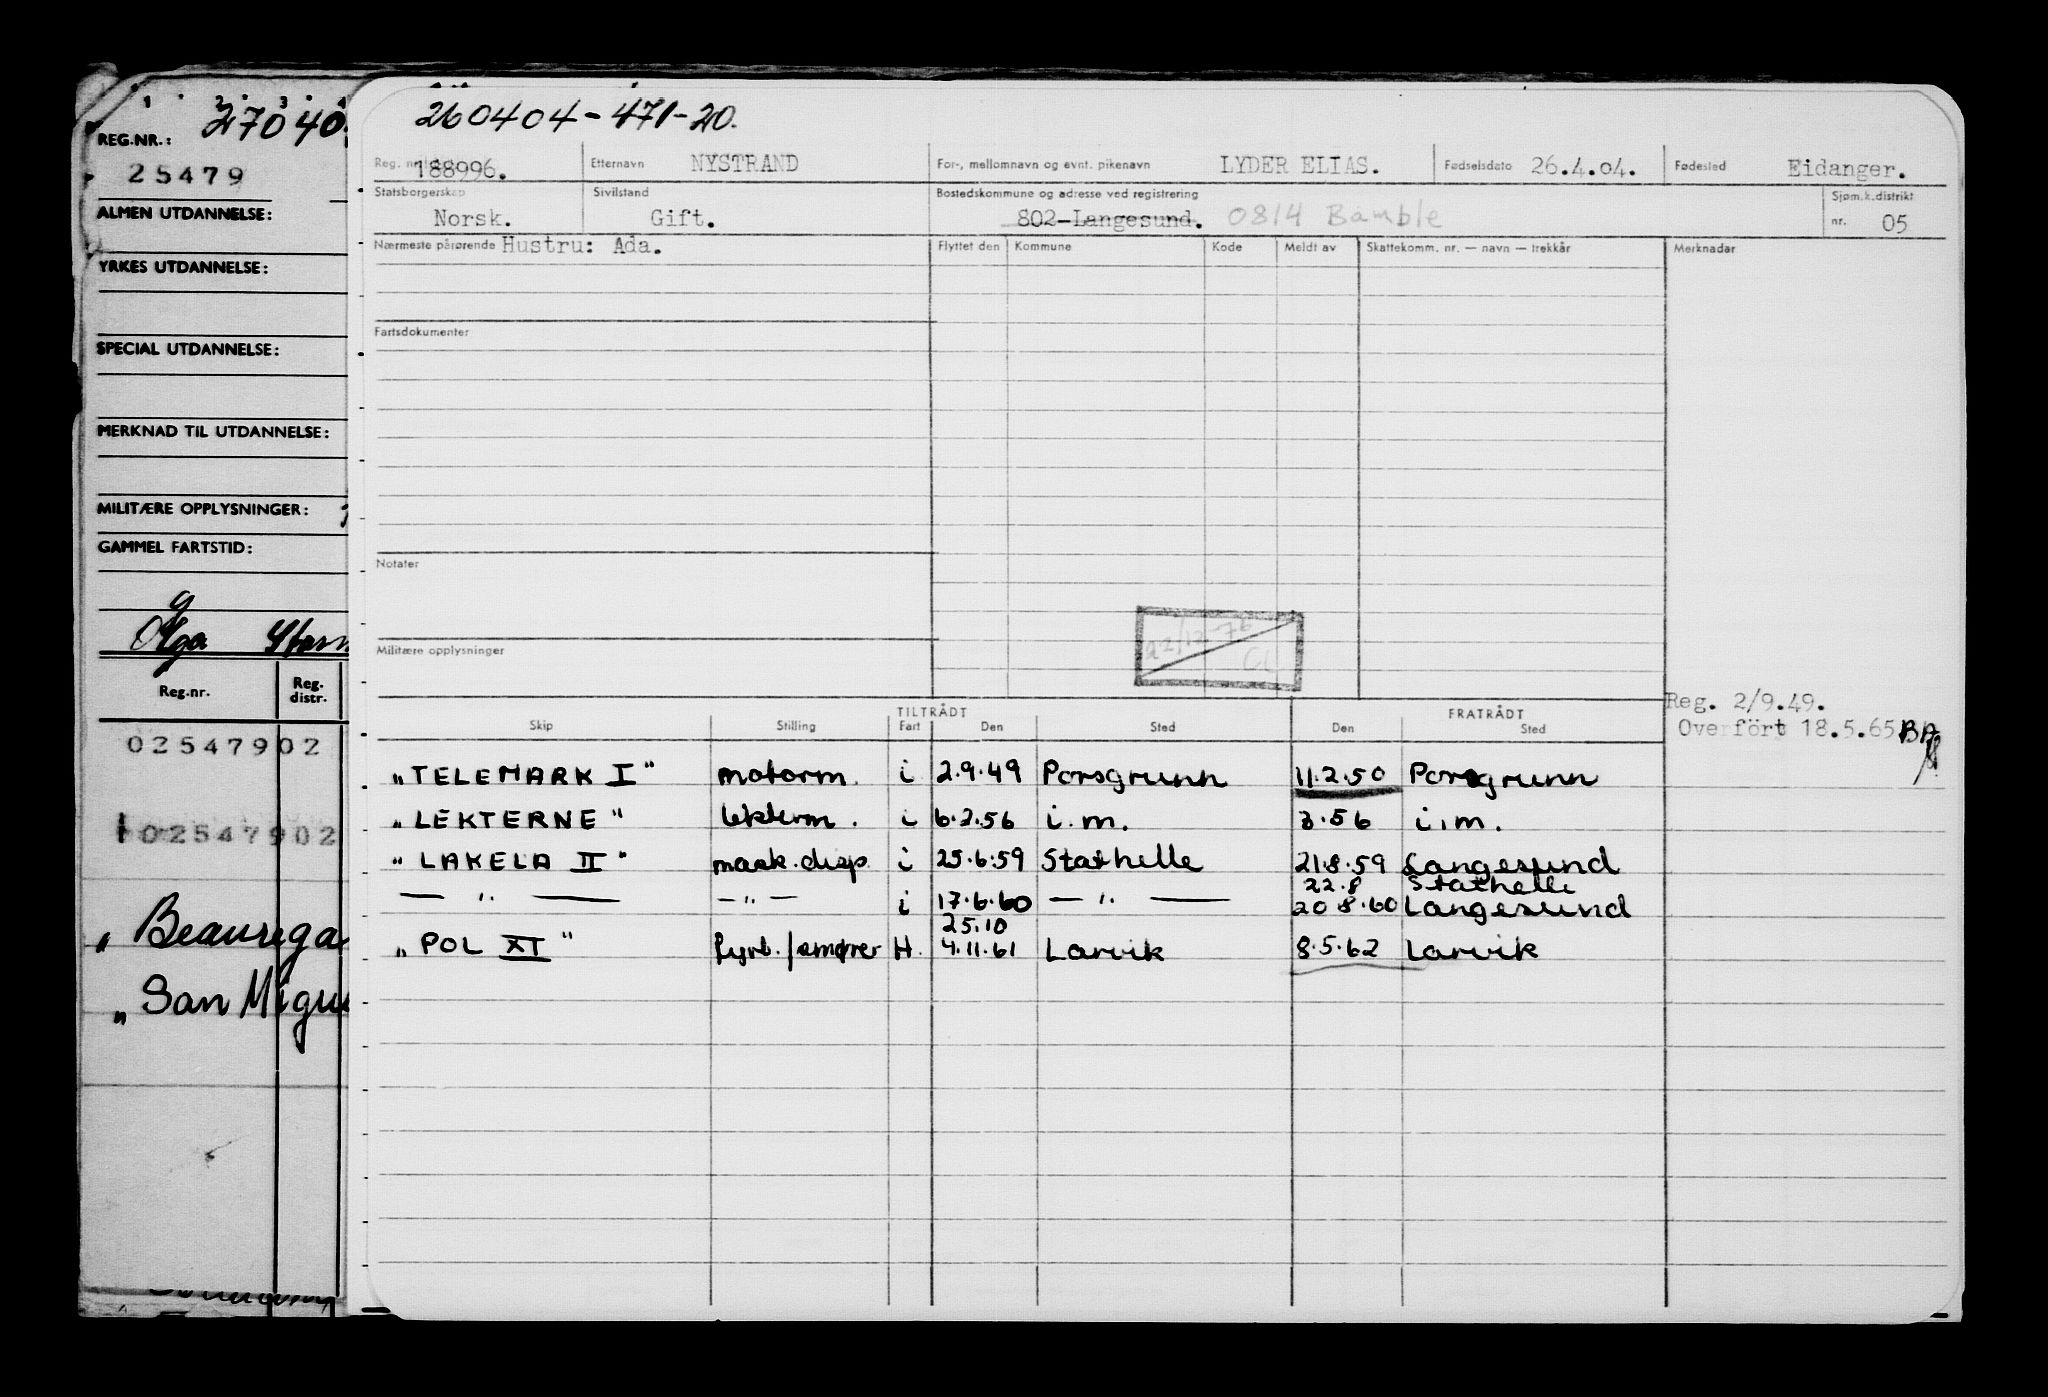 1 2 3 4
REG.NR.: 27040
25479
ALMEN UTDANNELSE:
YRKES UTDANNELSE:
SPECIAL UTDANNELSE:
MERKNAD TIL UTDANNELSE:
MILITÆRE OPPLYSNINGER:
GAMMEL FARTSTID:
Reg.nr. Reg. distr.
02547902
02547902
„Beaurega
„San Migu
260404-471-20.
Reg. nr. 188996. Etternavn NYSTRAND For-, mellomnavn og evnt. pikenavn LYDER ELIAS. Fødselsdato 26.4.04. Fødested Eidanger.
Statsborgerskap Norsk. Sivilstand Gift. Bostedskommune og adresse ved registrering 802-Langesund. 0814 Bamble Sjøm.k.distrikt nr. 05
Nærmeste pårørende Hustru: Ada. Flyttet den Kommune Kode Meldt av Skattekomm. nr. — navn — trekkår Merknader
Fartsdokumenter
Notater
22/12-76
Militære opplysninger
Reg. 2/9.49.
Overført 18.5.65 BA
TILTRÅDT FRATRÅDT
Skip Stilling Fart Den Sted Den Sted
„TELEMARK I" motorm. i 2.9.49 Porsgrunn 11.2.50 Porsgrunn
„LEKTERNE" lekterm. i 6.2.56 i.m. 3.56 i.m.
„LAKELA II" mask.disp i 25.6.59 Stathelle 21.8.59 Langesund
22.8 Stathelle
— " — — " — i 17.6.60 — " — 20.8.60 Langesund
25.10
„POL XI" fyrb./smører H. 4.11.61 Larvik 8.5.62 Larvik